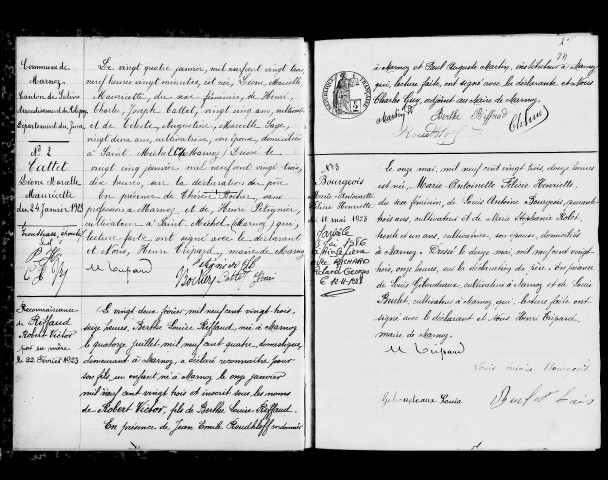 Commune de
Marnoz
Canton de Salins
Arrondissement de Poligny
Département du Jura
N° 2
Cattet
Léone Marcelle
Mauricette
du 24 janvier 1923
Le vingt quatre janvier, mil neuf cent vingt trois,
neuf heures vingt minutes, est née, Léone, Marcelle
Mauricette, du sexe féminin, de Henri,
Charles, Joseph Cattet, vingt cinq ans, cultivateur
et de Céleste, Augustine, Marcelle
vingt deux ans, cultivatrice, son épouse, domiciliés
à Saint Michel (Marnoz) Dressé le
vingt cinq janvier mil neuf cent vingt trois,
dix heures, sur la déclaration du père
En présence de Thérèse sans
profession à Marnoz et de Henri Pétignier,
cultivateur à Saint Michel (Marnoz) qui,
lecture faite ont signé avec le déclarant
et Nous, Henri Tripard, maire de Marnoz
Reconnaissance
de Riffaud
Robert Victor
par sa mère
le 22 février 1923
Le vingt deux février, mil neuf cent vingt-trois,
onze heures, Berthe Louise Riffaud, née à Marnoz
le quatorze juillet, mil neuf cent quatre, domestique,
demeurant à Marnoz, a déclaré reconnaître pour
son fils, un enfant, né à Marnoz le onze janvier
mil neuf cent vingt trois et inscrit sous les noms
de Robert Victor, fils de Berthe Louise Riffaud.
En présence de Jean Emile Roudhloff cordonnier
à Marnoz et Paul Auguste Martin, instituteur à Marnoz
qui, lecture faite, ont signé avec la déclarante et Nous
Charles Guy, adjoint au Maire de Marnoz.
Martin P Berthe Riffaud
N° 3
Bourgeois
Marie-Antoinette
Félicie Henriette
11 mai 1923
Le onze mai, mil neuf cent vingt trois, douze heures
est née, Marie Antoinette Félicie Henriette,
du sexe féminin, de Louis Antoine Bourgeois, quarante-
trois ans, cultivateur et de Marie Stéphanie Rolet,
trente et un ans, cultivatrice, son épouse, domiciliés
à Marnoz. Dressé le douze mai, mil neuf cent vingt
trois, onze heures, sur la déclaration du père. En présence
de Louis Geloudeaux, cultivateur à Marnoz et de Louis
Burlet, cultivateur à Marnoz, qui, lecture faite ont
signé avec le déclarant et Nous Henri Tripard,
maire de Marnoz.
Louis Antoine Bourgeois